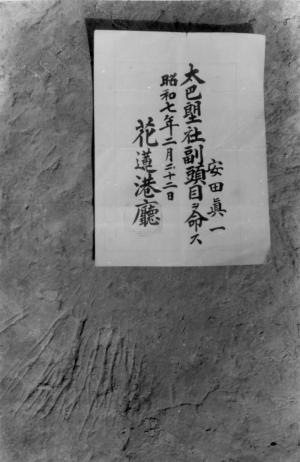 安田眞一
太巴塱社副頭目ヲ命ス
昭和七年二月二十二日
花蓮港廳